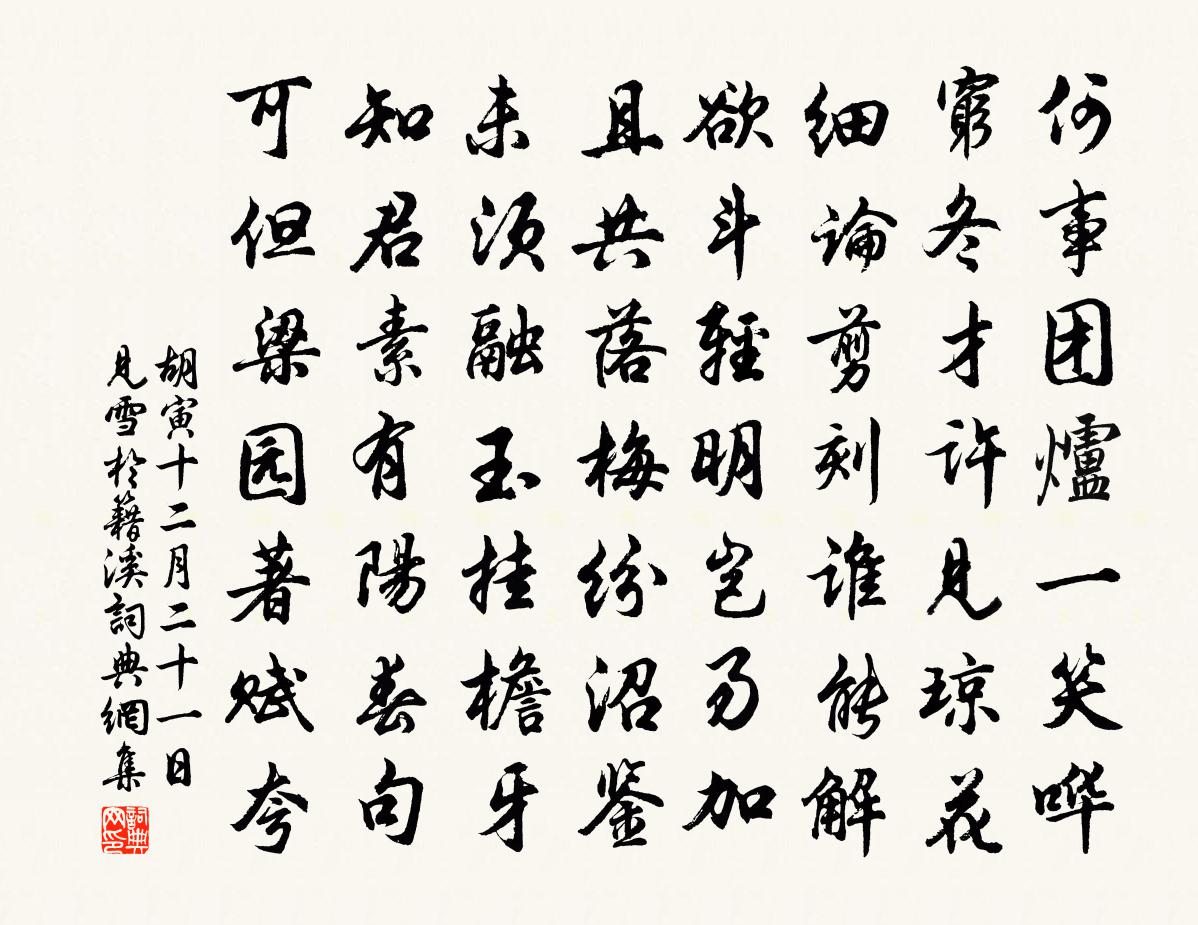 何事团爐一笑哗
窮冬才许見琼花
细論剪刻谁能解
欲斗輕明岂易加
且共落梅纷沼鉴
未须融玉挂檐牙
知君素有陽春句
可但梁园著赋夸
胡寅十二月二十一日
見雪於籍溪詞典網集
詞典网印